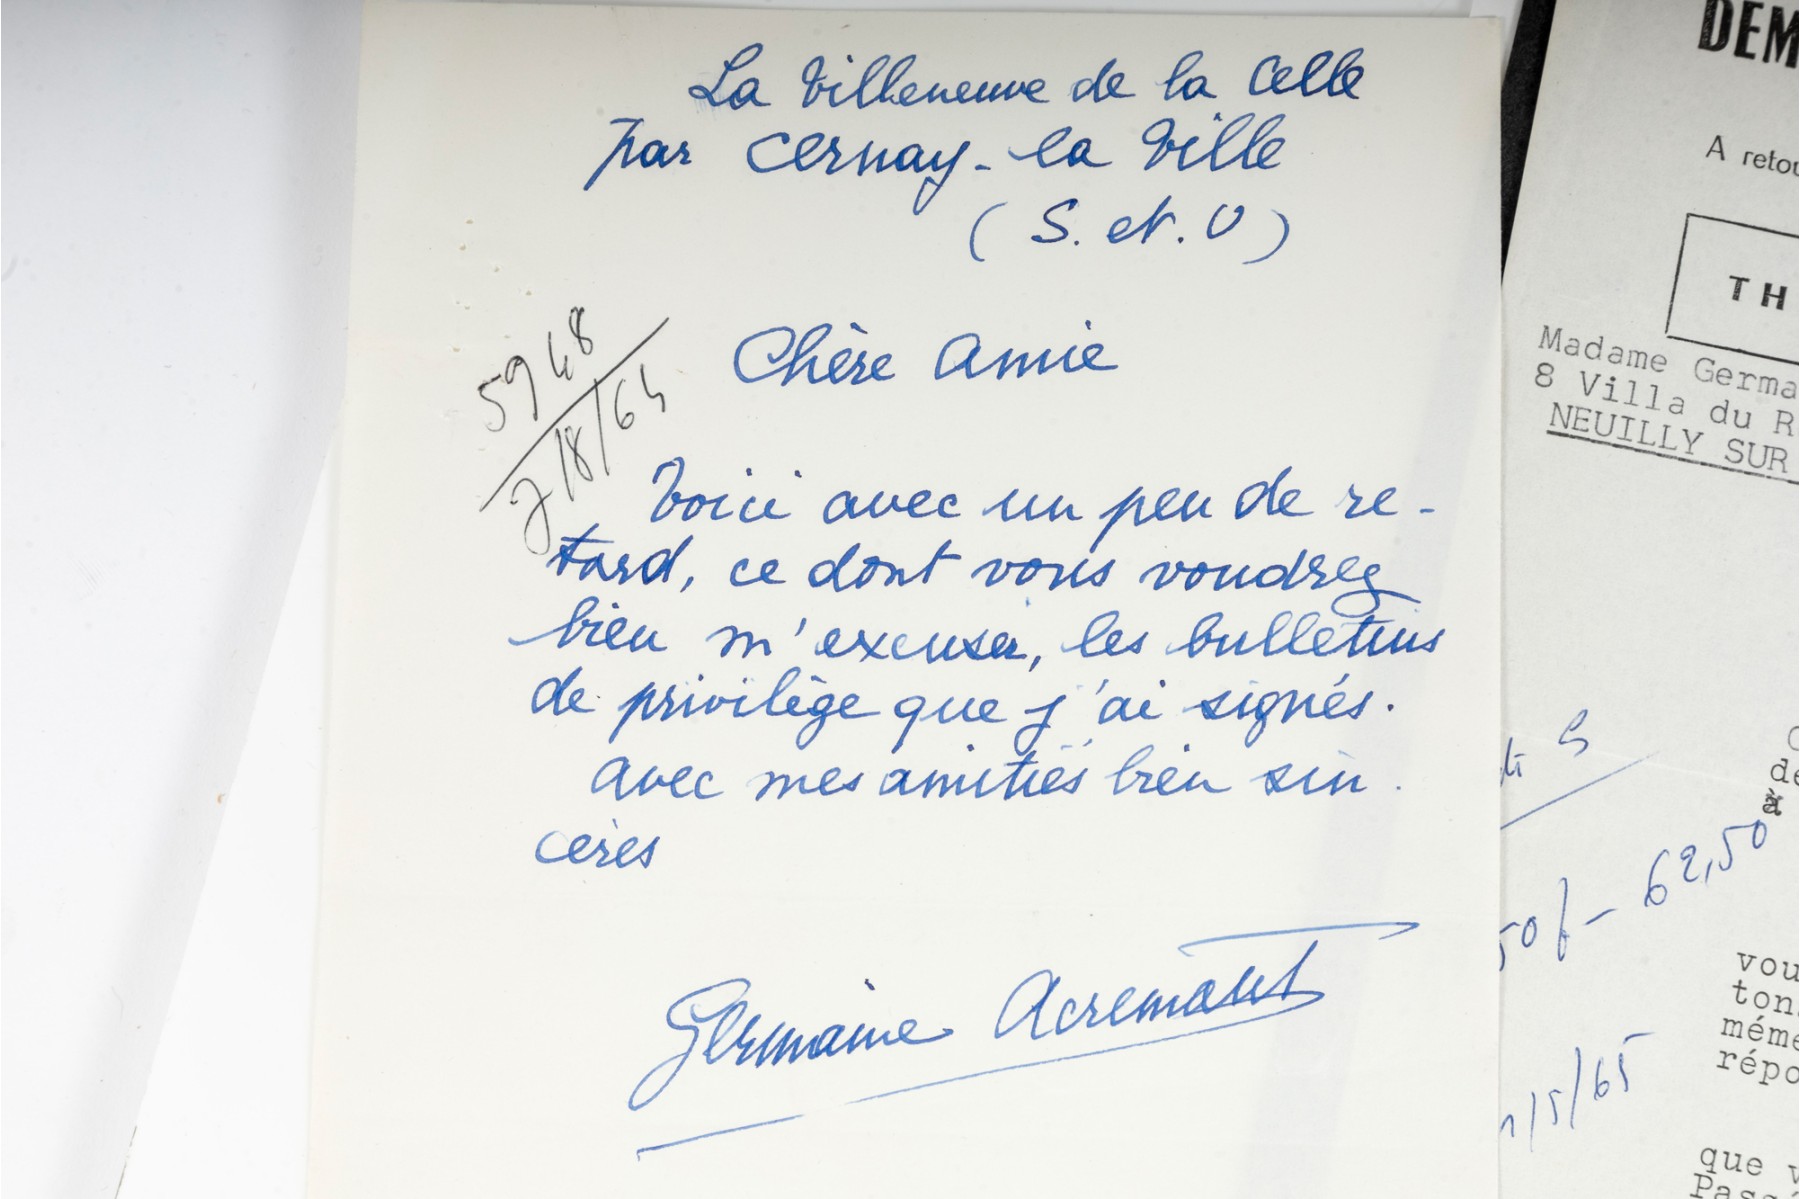 La Villeneuve de la Celle
par Cernay-la Ville
(S. et. O)
5948
7/8/64
Chère Amie
Voici avec un peu de re-
tard, ce dont vous voudrez
bien m'excuser, les bulletins
de privilège que j'ai signés.
avec mes amitiés bien sin
cères
Germaine Acremant
DEM
A retou
TH
Madame Germa
8 Villa du R
NEUILLY SUR
de
à
50f - 62,50
/5/65
vou
ton
méme
répo
que v
Pass